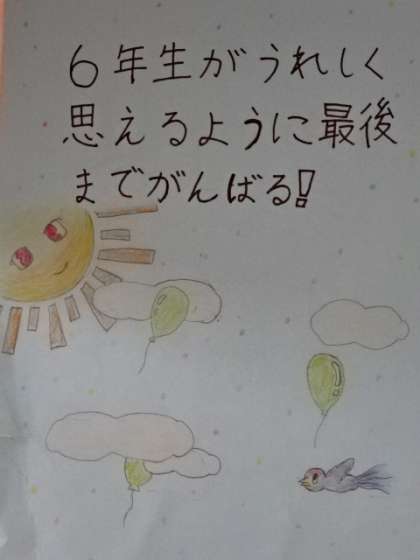 6年生がうれしく
思えるように最後
までがんばる!